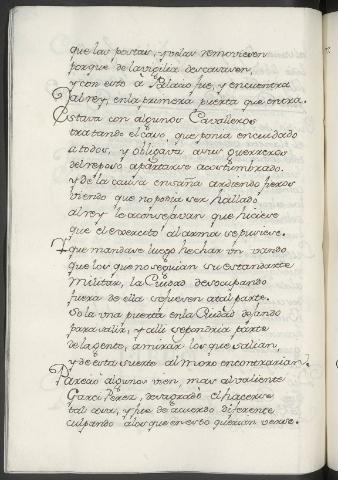 que las postas, y velas removiesen
porque de la vigilia descansasen,
y con esto a Palacio fue, y encuentra
Al rey, en la primera puerta que entra.
Estava con algunos Cavalleros
tratando el caso, que ponia en cuidado
a todos, y obligava a sus guerreros
del reposo apartarse acostumbrado.
y de la causa en saña ardiendo fieros
viendo que no podia ser hallado
al rey le aconsejavan que hiciese
que el exercito al arma se pusiese.
Y que mandase luego hechar un vando
que los que no seguian su estandarte
Militar, la Ciudad desocupando
fuera de ella se fuesen a tal parte.
Sola una puerta en la Ciudad dejando
para salir, y alli se pondria parte
de la gente, a mirar los que salian,
y de esta suerte al moro encontrarian.
Pareció a algunos vien, mas al valiente
Garci Perez, desagradó el hacerse
tal cosa, y fue de acuerdo diferente
culpando a los que en esto querian verse.